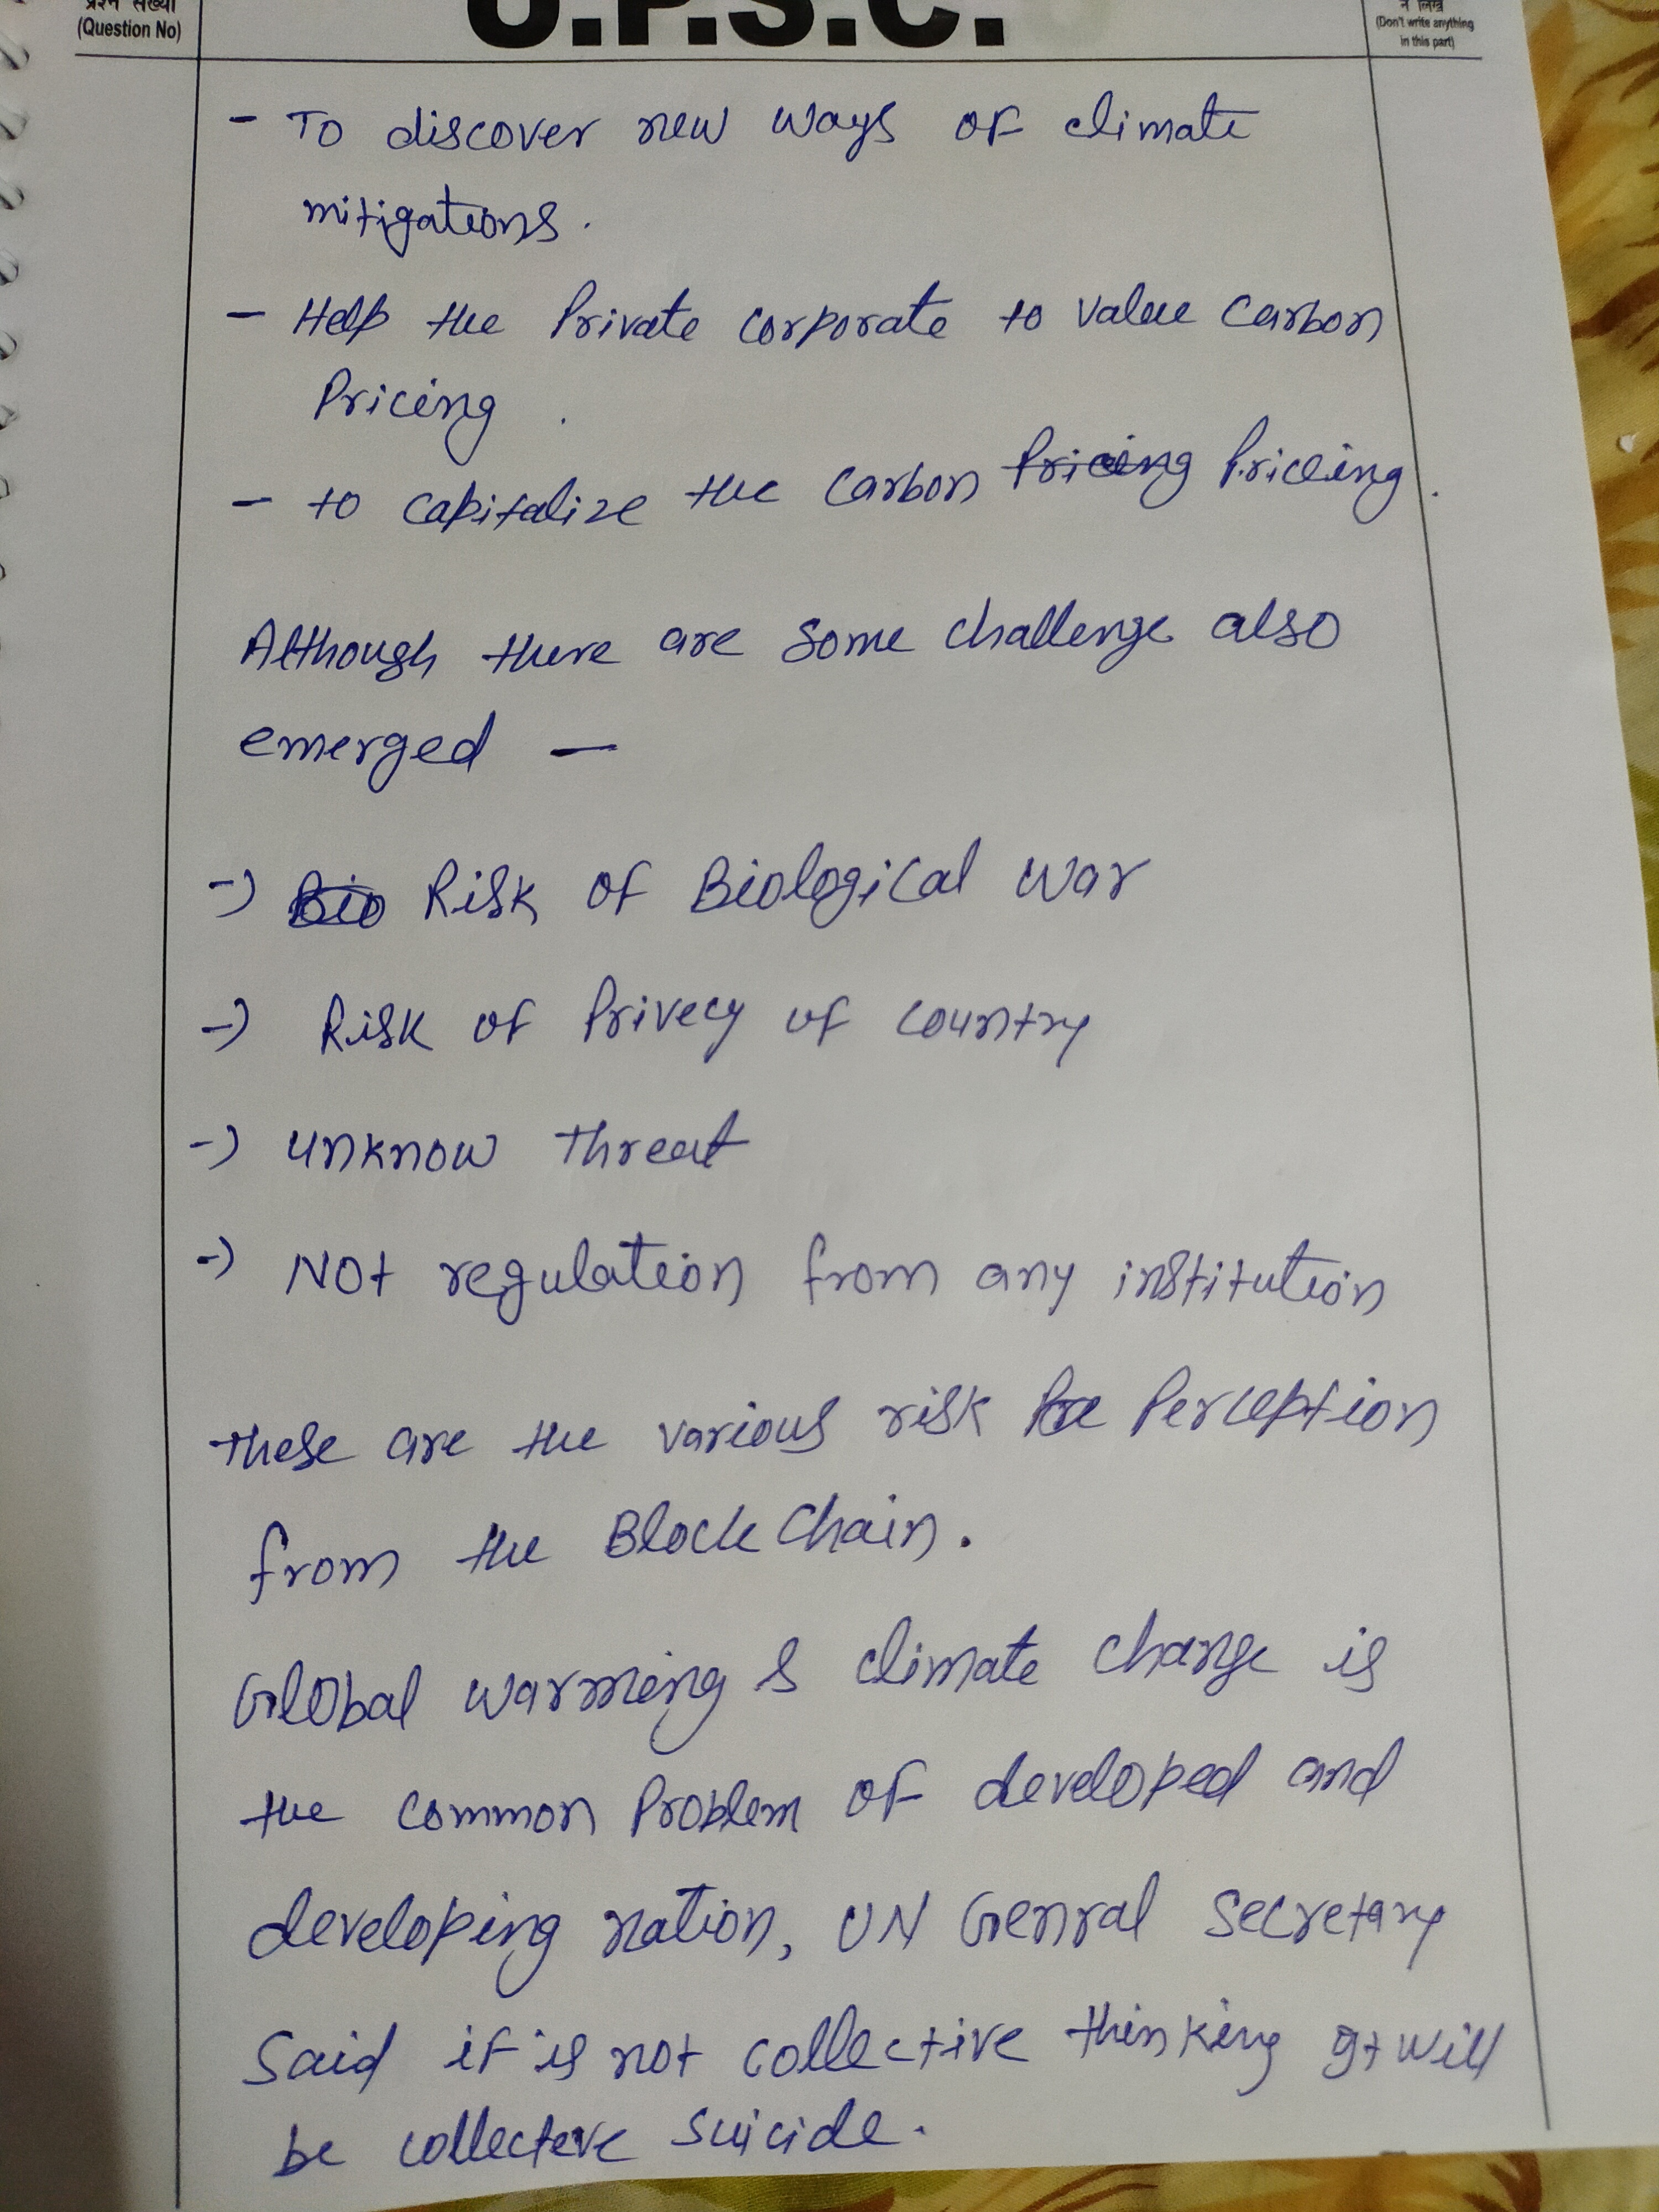 प्रश्न संख्या
(Question No)
U.P.S.C.
न लिखें
(Don't write anything
in this part)
- To discover new ways of climate
mitigations.
- Help the Private corporate to value Carbon
Pricing.
- to capitalize the carbon Pricing Priceing.
Although there are some challenge also
emerged -
-) Bio Risk of Biological war
-) Risk of Privecy of country
-) unknow threat
-) Not regulation from any institution
these are the various risk Pre Perception
from the Block Chain.
Global warming & climate change is
the common Problem of developed and
developing nation, UN Genral Secretary
said if is not collective thinking It will
be collective suicide.